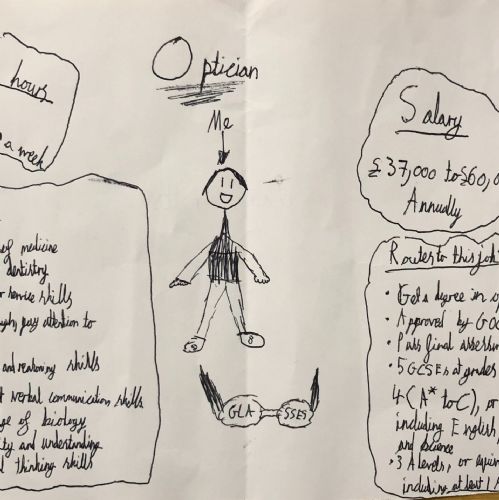 Optician
Me
hours
a week
of medicine
dentistry
service skills
pay attention to
and reasoning skills
verbal communication skills
of biology
and understanding
thinking skills
GLA SSES
Salary
£37,000 to £60,0
Annually
Routes to this job
• Get a degree in
• Approved by GOC
• Pass final assessm
• 5 GCSEs at grades
4 (A* to C), or
including English,
and science
• 3 A levels, or equiv
including at least 1